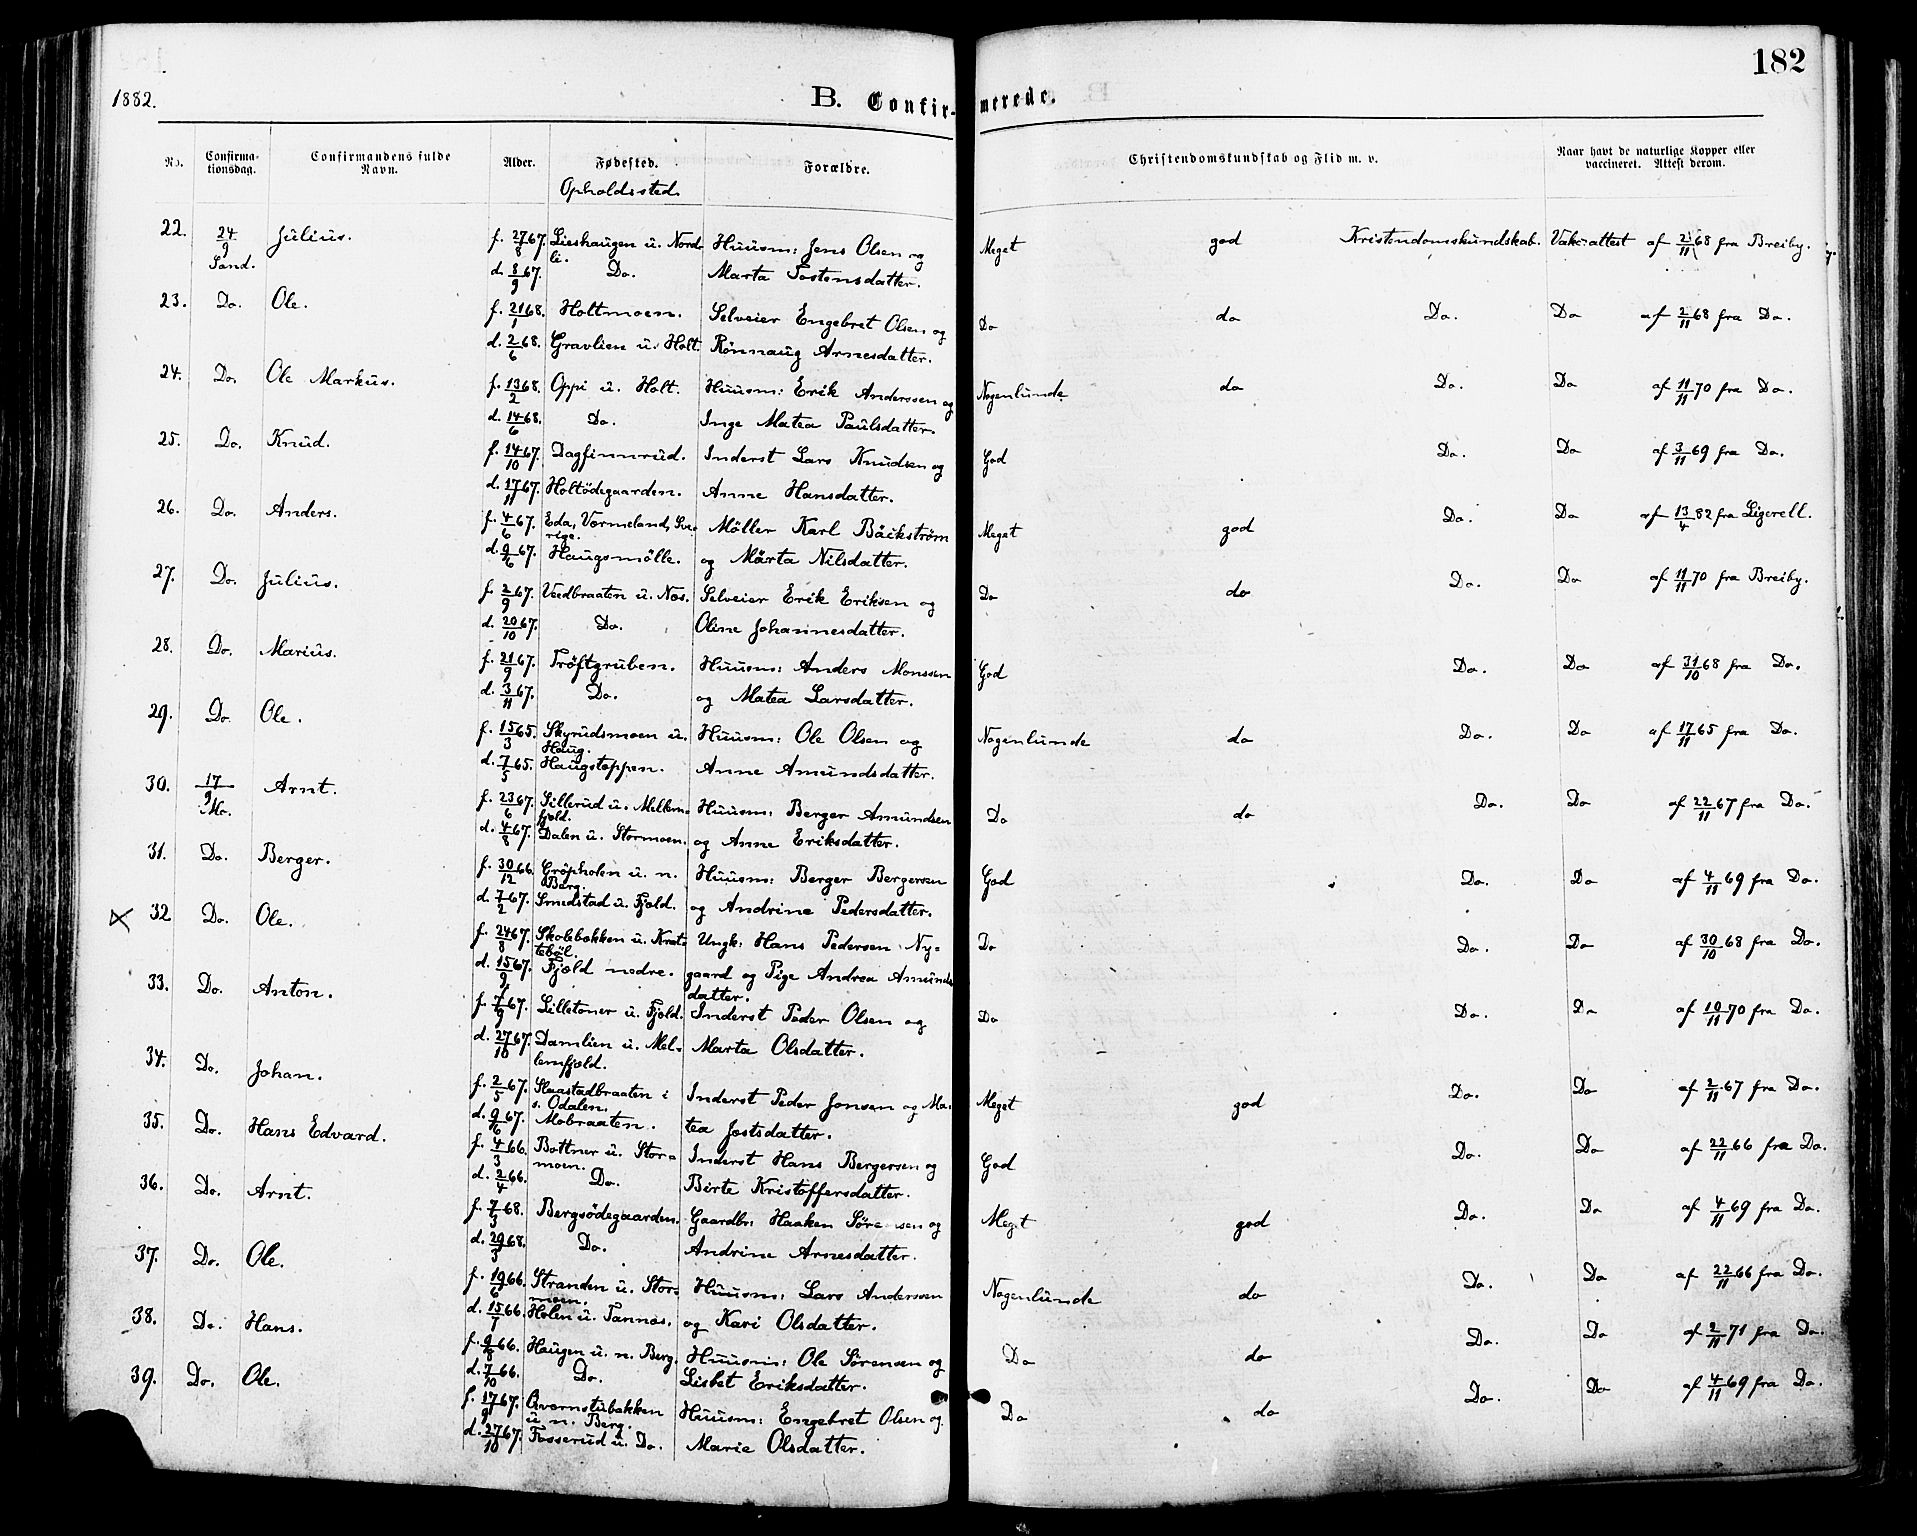 182
1882.
B. Confirmerede.
No. Confirmationsdag. Confirmandens fulde Navn. Alder. Fødested. Forældre. Christendomskundskab og Flid m. v. Naar havt de naturlige Kopper eller vaccineret. Attest derom.
Opholdssted.
22. 24/9 Sand. Julius. f. 27/8 67. Lieshaugen u. Nordli. Huusm: Jens Olsen og Meget god Kristendomskundskab. Vakc.attest af 2/11 68 fra Breiby.
d. 8/9 67. Do. Marta Tostensdatter.
23. Do. Ole. f. 21/1 68. Holtmoen. Selveier Engebret Olsen og Do do Do. Do af 2/11 68 fra Do.
d. 2/6 68. Gravlien u. Holt. Rönnaug Arnesdatter.
24. Do. Ole Markus. f. 13/2 68. Oppi u. Holt. Huusm: Erik Anderssen og Nogenlunde do Do. Do af 11/11 70 fra Do.
d. 14/6 68. Do. Inge Matea Paulsdatter.
25. Do. Knud. f. 14/10 67. Dagfinnrud. Inderst Lars Knudsen og God Do. Do af 3/11 69 fra Do.
d. 17/11 67. Holtödegaarden. Anne Hansdatter.
26. Do. Anders. f. 4/6 67. Eda, Värmeland, Sverige. Möller Karl Bäickström Meget god Do. Do af 13/4 82 fra Ligerell.
d. 9/6 67. Haugsmölle. og Märta Nilsdatter.
27. Do. Julius. f. 2/9 67. Veedbraaten u. Næs. Selveier Erik Eriksen og Do do Do. Do af 11/11 70 fra Breiby.
d. 20/10 67. Do. Oline Johannesdatter.
28. Do. Marius. f. 21/9 67. Tröftgruben. Huusm: Anders Monssen God Do. Do af 31/10 68 fra Do.
d. 3/11 67. Do. og Matea Larsdatter.
29. Do. Ole. f. 15/3 65. Skyrudsmoen u. Haug. Huusm: Ole Olsen og Nogenlunde do Do. Do af 17/11 65 fra Do.
d. 7/5 65. Haugstoppen. Anne Amundsdatter.
30. 17/9 Mo. Arnt. f. 23/6 67. Sillerud u. Mellemfjeld. Huusm: Berger Amundsen Do do Do. Do af 22/11 67 fra Do.
d. 4/8 67. Dalen u. Stormoen. og Anne Eriksdatter.
31. Do. Berger. f. 30/12 66. Gröpholen u. n. Berg. Huusm: Berger Bergersen God Do. Do af 4/11 69 fra Do.
d. 7/2 67. Smedstad u. Fjeld. og Andrine Pedersdatter.
32 Do. Ole. f. 24/8 67. Skolebækken u. Krættebøl. Ungk: Hans Pedersen Ny- Do Do. Do af 30/10 68 fra Do.
d. 15/9 67. Fjæld nedre. gaard og Pige Andrea Amundsdatter.
33. Do. Anton. f. 7/9 67. Lilletoner u. Fjeld. Inderst Peder Olsen og Do Do. Do af 10/11 70 fra Do.
d. 27/10 67. Damlien u. Mellemfjeld. Marta Olsdatter.
34. Do. Johan. f. 2/5 67. Slaastadbraaten i s. Odalen. Inderst Peder Jonsen og Ma- Meget god Do. Do af 2/11 67 fra Do.
d. 9/6 67. Mobraaten. tea Jostsdatter.
35. Do. Hans Edvard. f. 4/3 66. Bottner u. Stormoen. Inderst Hans Bergersen og God Do. Do af 22/11 66 fra Do.
d. 2/4 66. Do. Birte Kristoffersdatter.
36. Do. Arnt. f. 7/3 68. Bergsödegaarden. Gaardbr: Haaken Sörensen og Meget god Do. Do af 4/11 69 fra Do.
d. 29/3 68. Do. Andrine Arnesdatter.
37. Do. Ole. f. 19/6 66. Stranden u. Stormoen. Huusm: Lars Anderssen Nogenlunde do Do. Do af 22/11 66 fra Do.
d. 15/7 66. Holen u. Tannæs. og Kari Olsdatter.
38. Do. Hans. f. 9/8 66. Haugen u. n. Berg. Huusm: Ole Sörensen og Do do Do. Do af 2/11 71 fra Do.
d. 7/10 66. Do. Lisbet Eriksdatter.
39. Do. Ole. f. 17/9 67. Qvernstubakken u. n. Berg. Huusm: Engebret Olsen og Do do Do. Do af 4/11 69 fra Do.
d. 27/10 67. Fosserud u. Do. Marie Olsdatter.